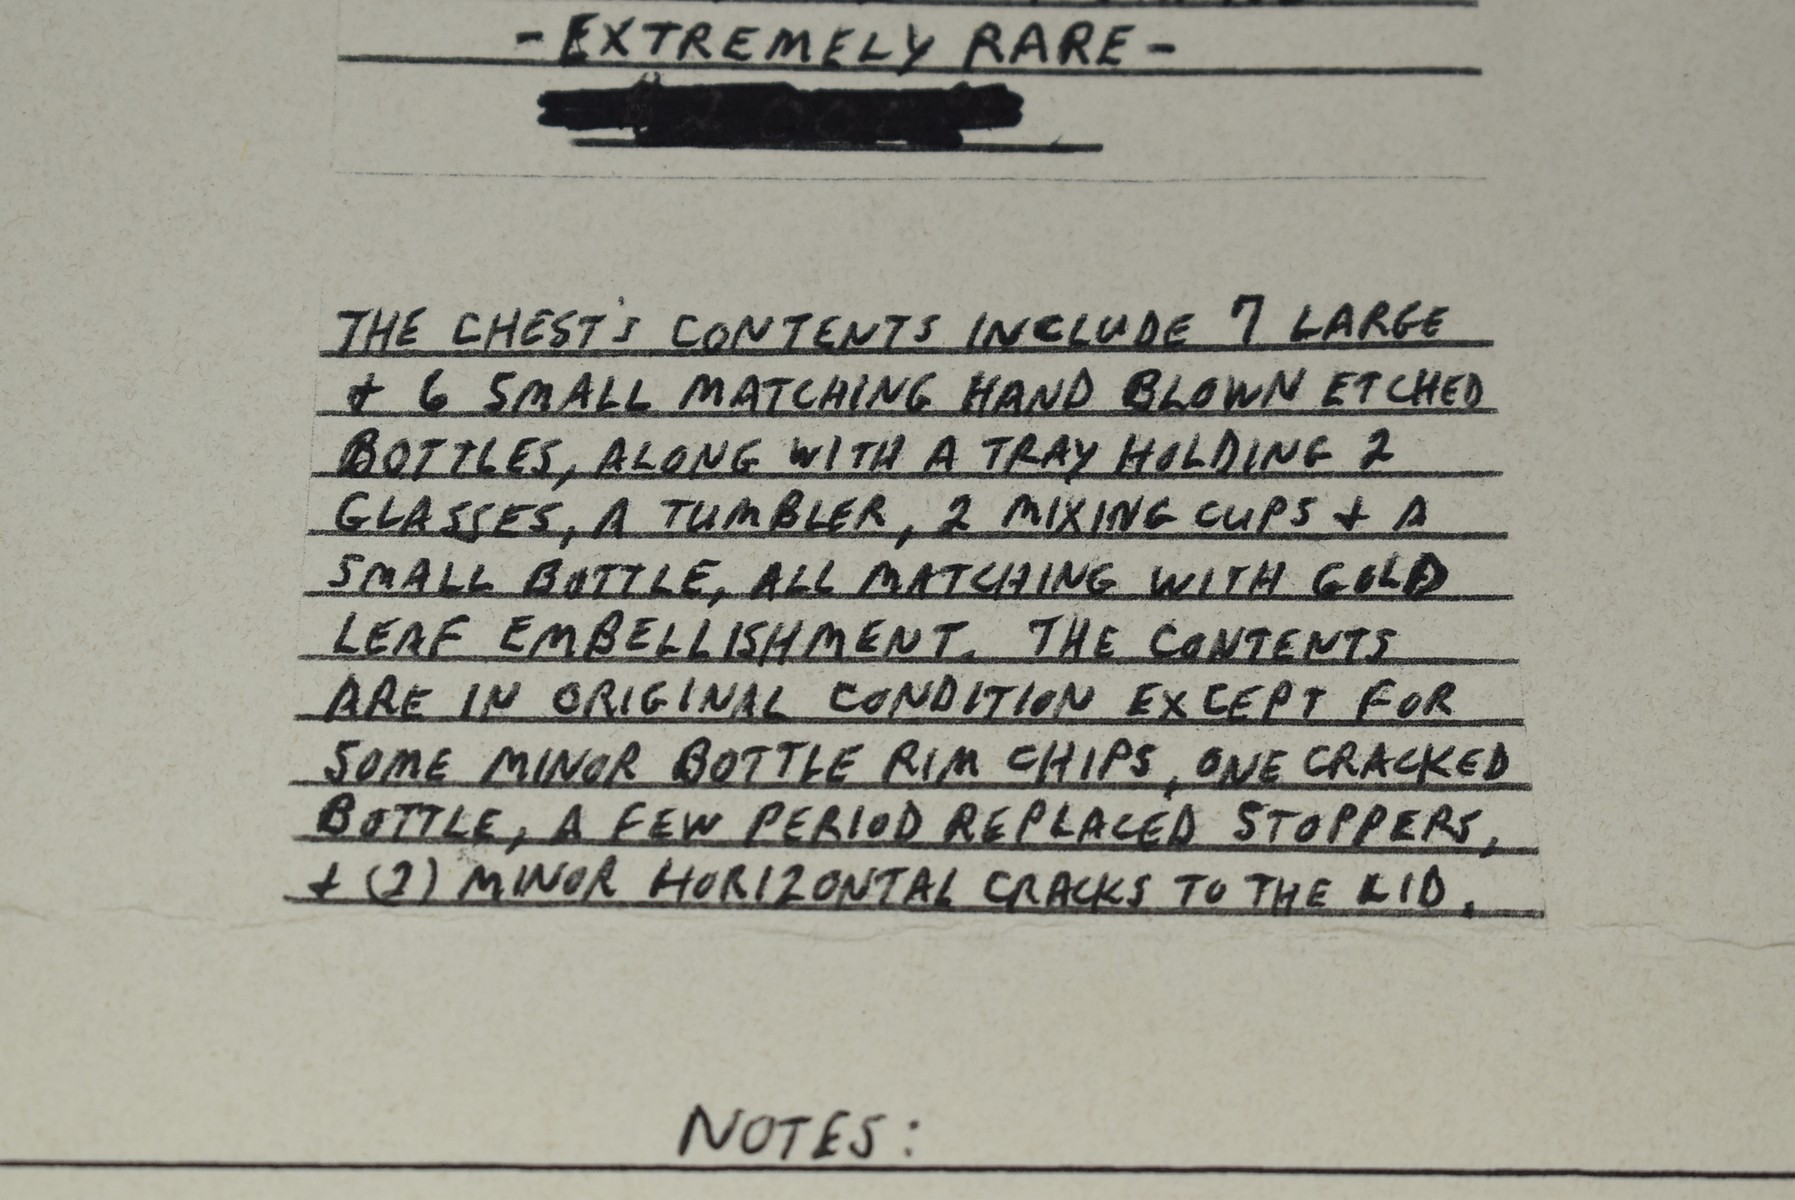 -EXTREMELY RARE-
THE CHEST'S CONTENTS INCLUDE 7 LARGE
& 6 SMALL MATCHING HAND BLOWN ETCHED
BOTTLES, ALONG WITH A TRAY HOLDING 2
GLASSES, A TUMBLER, 2 MIXING CUPS & A
SMALL BOTTLE, ALL MATCHING WITH GOLD
LEAF EMBELLISHMENT. THE CONTENTS
ARE IN ORIGINAL CONDITION EXCEPT FOR
SOME MINOR BOTTLE RIM CHIPS, ONE CRACKED
BOTTLE, A FEW PERIOD REPLACED STOPPERS,
& (2) MINOR HORIZONTAL CRACKS TO THE LID.
NOTES: